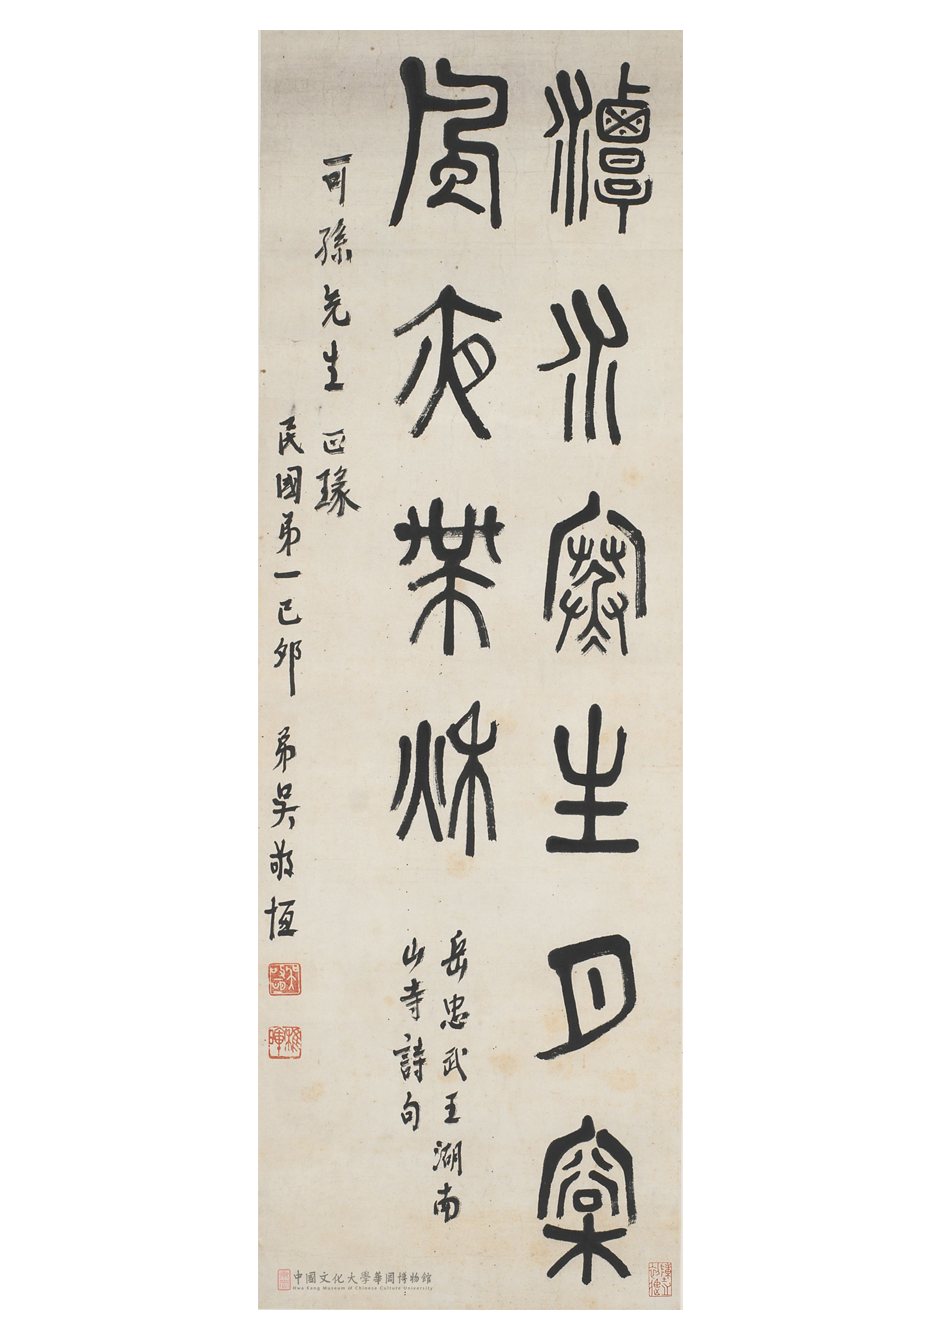 潭水寒生月松
風夜帶秋
岳忠武王湖南
山寺詩句
可孫先生 正瑑
民國弟一己卯 弟吳敬恆
稚暉
中國文化大學華岡博物館
Hwa Kang Museum of Chinese Culture University